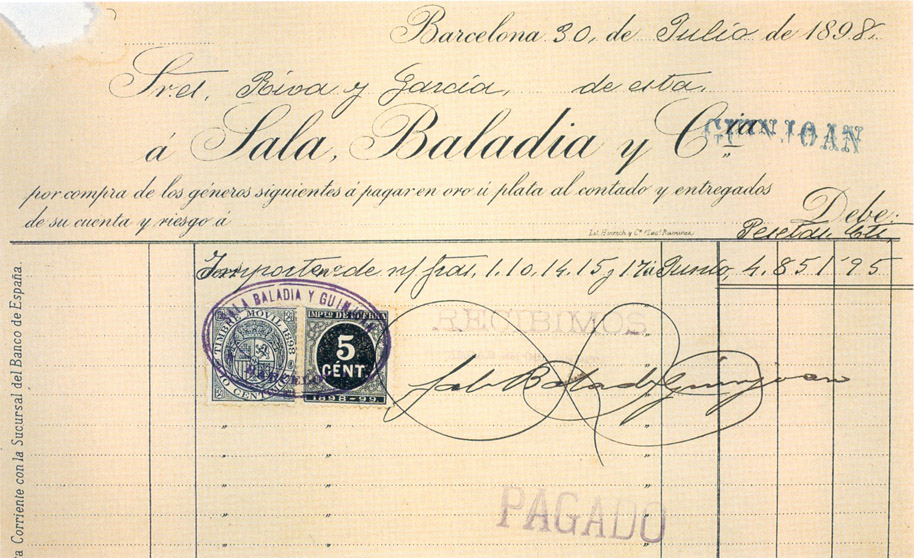 Barcelona 30, de Julio de 1898.
Sres. Riva y García, de esta.
á Sala, Baladia y Cía
GUINJOAN
por compra de los géneros siguientes á pagar en oro ú plata al contado y entregados
de su cuenta y riesgo á
Debe:
Lit. Henrich y Cª
Pesetas Cts.
Importe de n/ fras, 1. 10. 14. 15 y 17 Junio, 4.851'95
SALA BALADIA Y GUINJOAN
BARCELONA
TIMBRE MOVIL 1898
IMPTO DE GUERRA
5
CENT.
1898-99.
RECIBIMOS
Sala Baladia Guinjoan
PAGADO
Corriente con la Sucursal del Banco de España.